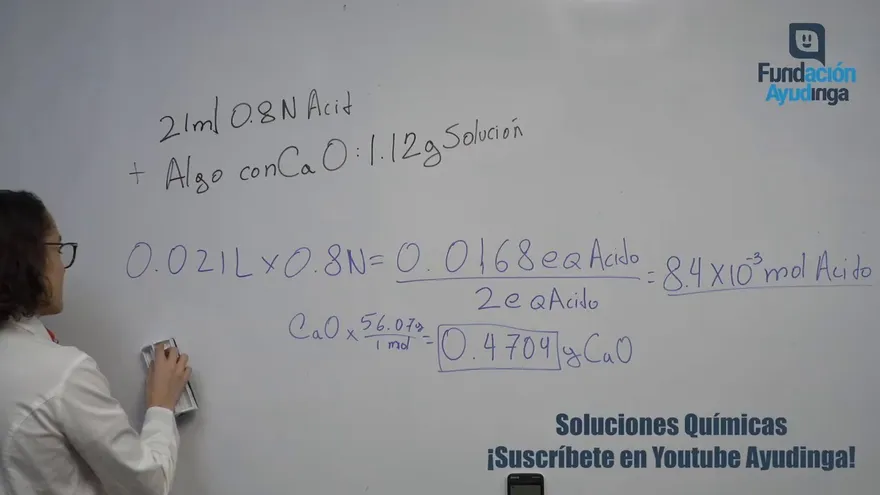 Fundación
Ayudinga
21ml 0.8N Acit
+ Algo con CaO: 1.12g Solución
0.021L x 0.8N = 0.0168 eq Acido / 2 eq Acido = 8.4 x 10⁻³ mol Acido
CaO x 56.07g / 1 mol = 0.4704 g CaO
Soluciones Químicas
¡Suscríbete en Youtube Ayudinga!